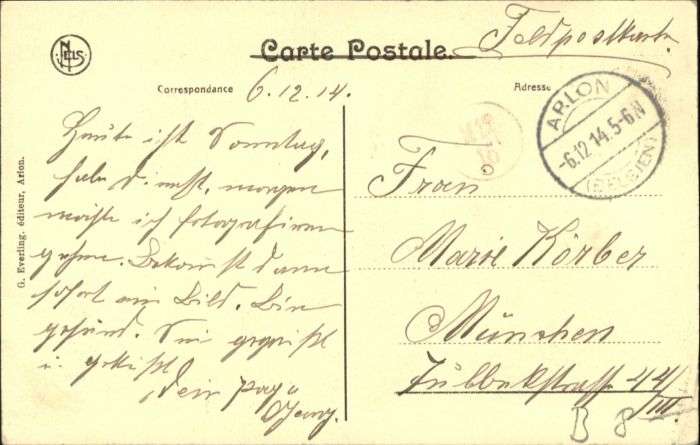 NELS
Carte Postale.
Feldpostkarte
Correspondance
Adresse
6.12.14.
Heute ist Sonntag,
habe Dienst, morgen
möchte ich fotografieren
gehen. Bekommst dann
sofort ein Bild. Bin
gesund. Sei gegrüßt
u. geküßt
Dein Papa
Georg.
G. Everling, éditeur, Arlon.
ARLON
-6.12.14.5-6N
(BELGIEN)
Frau
Marie Körber
München
44/III.
B 8